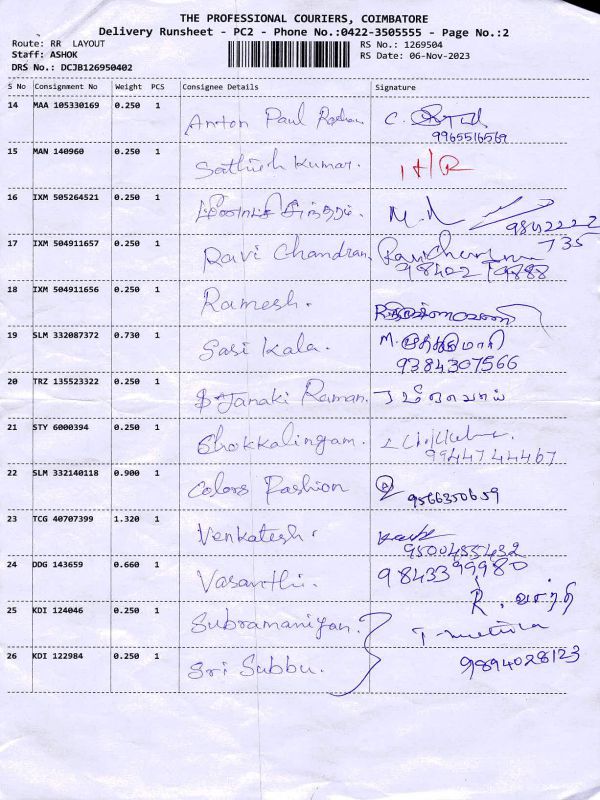 THE PROFESSIONAL COURIERS, COIMBATORE
Delivery Runsheet - PC2 - Phone No.:0422-3505555 - Page No.:2
Route: RR LAYOUT
RS No.: 1269504
Staff: ASHOK
RS Date: 06-Nov-2023
DRS No.: DCJB126950402
S No Consignment No Weight PCS Consignee Details Signature
14 MAA 105330169 0.250 1 Anton Paul C.
9965516569
15 MAN 140960 0.250 1 Sathish Kumar.
16 IXM 505264521 0.250 1
17 IXM 504911657 0.250 1 Ravi Chandran.
18 IXM 504911656 0.250 1 Ramesh.
19 SLM 332087372 0.730 1 Sasi Kala. M.
9384307566
20 TRZ 135523322 0.250 1 Janaki Raman.
21 STY 6000394 0.250 1 Chokkalingam.
9944744467
22 SLM 332140118 0.900 1 Colors Fashion 9566350659
23 TCG 40707399 1.320 1 Venkatesh.
9500455432
24 DDG 143659 0.660 1 Vasanthi. 9843399980
R. வசந்தி
25 KDI 124046 0.250 1 Subramaniyan.
26 KDI 122984 0.250 1 Sri Subbu. 9894028123